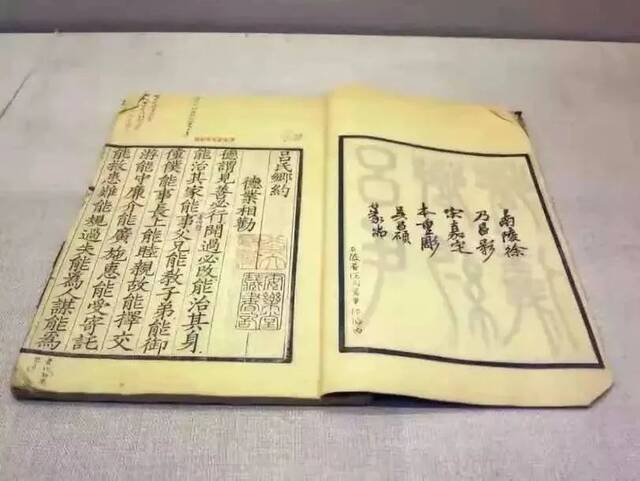 南陵徐
乃昌影
宋嘉定
本重彫
吳昌碩
篆耑
呂氏鄉約
德業相勸
德謂見善必行聞過必改能治其身
能治其家能事父兄能教子弟能御
僮僕能事長上能睦親故能擇交
游能守廉介能廣施惠能受寄託
能救患難能規過失能爲人謀能爲